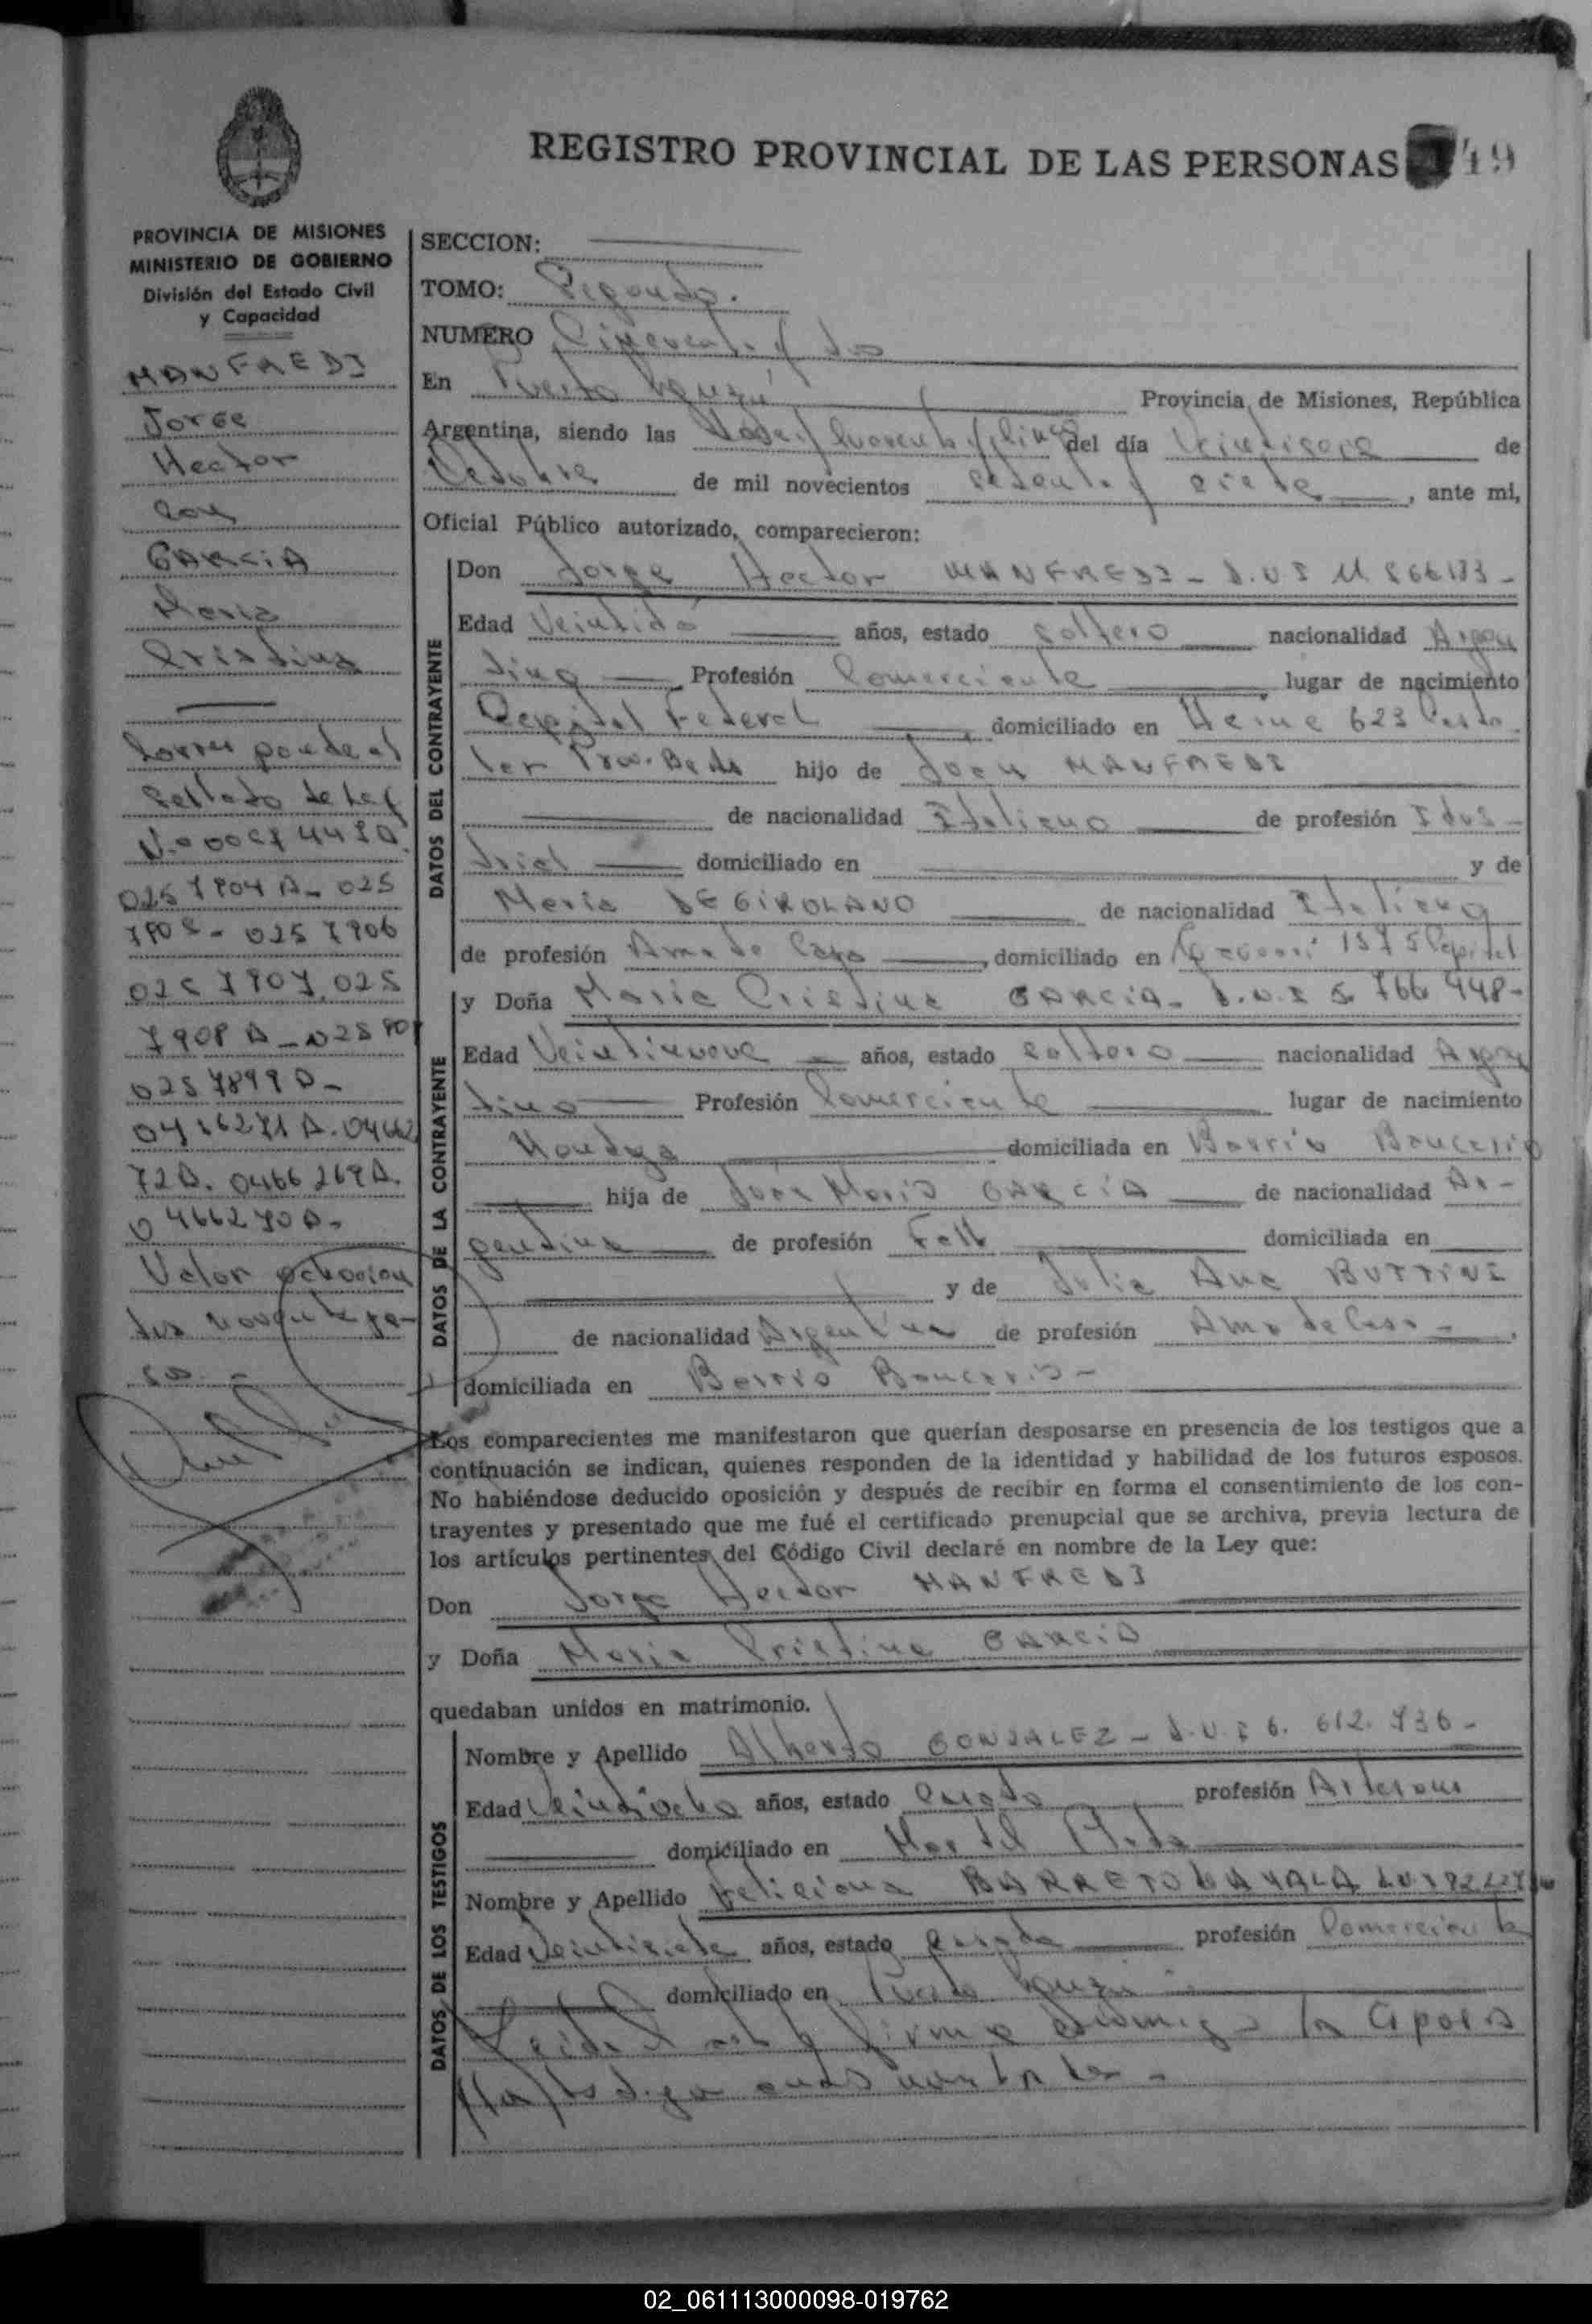 REGISTRO PROVINCIAL DE LAS PERSONAS 149
PROVINCIA DE MISIONES
MINISTERIO DE GOBIERNO
División del Estado Civil
y Capacidad
MANFREDI
Jorge
Hector
con
GARCIA
Maria
Cristina
Corresponde al
Sellado de Ley
025 7904 A - 025
7905 - 025 7906
025 7907, 025
7908 A -
025 7899 A -
72A. 0466269A.
0466270A -
Valor ochocien
tos
SECCION:
TOMO: Segundo.
NUMERO Cincuenta y dos
En Puerto Iguazú Provincia de Misiones, República
Argentina, siendo las doce y cuarenta y cinco del día Veintiseis de
Octubre de mil novecientos setenta y siete, ante mi,
Oficial Público autorizado, comparecieron:
DATOS DEL CONTRAYENTE
Don Jorge Hector MANFREDI - D.N.I 11 866133 -
Edad Veintidos años, estado soltero nacionalidad Argen
tina Profesión Comerciante lugar de nacimiento
Capital Federal, domiciliado en Heine 623 Caste
lar Prov. Bs As hijo de Juan MANFREDI
de nacionalidad Italiano de profesión Indus
trial domiciliado en y de
Maria DEGIROLANO de nacionalidad Italiana
de profesión Ama de Casa, domiciliado en 1575 Capital
DATOS DE LA CONTRAYENTE
y Doña Maria Cristina GARCIA - D.N.I 5 766 448 -
Edad Veintinueve años, estado soltera nacionalidad Argen
tina Profesión Comerciante lugar de nacimiento
domiciliada en Barrio
hija de Juan Mario GARCIA de nacionalidad Ar-
gentina de profesión Fall domiciliada en
y de Julia Ana BUTTINI
de nacionalidad Argentina de profesión Ama de Casa -,
domiciliada en Barrio
Los comparecientes me manifestaron que querían desposarse en presencia de los testigos que a
continuación se indican, quienes responden de la identidad y habilidad de los futuros esposos.
No habiéndose deducido oposición y después de recibir en forma el consentimiento de los con-
trayentes y presentado que me fué el certificado prenupcial que se archiva, previa lectura de
los artículos pertinentes del Código Civil declaré en nombre de la Ley que:
Don Jorge Hector MANFREDI
y Doña Maria Cristina GARCIA
quedaban unidos en matrimonio.
DATOS DE LOS TESTIGOS
Nombre y Apellido Alberto GONZALEZ - D.N.I 6. 612. 736 -
Edad Veintiocho años, estado casado profesión Artesano
domiciliado en Mar del Plata
Nombre y Apellido Feliciana BARRETO AYALA
Edad Veintisiete años, estado casada profesión Comerciante
domiciliado en Puerto Iguazú
Leida el acta la firman conmigo los
02_061113000098-019762